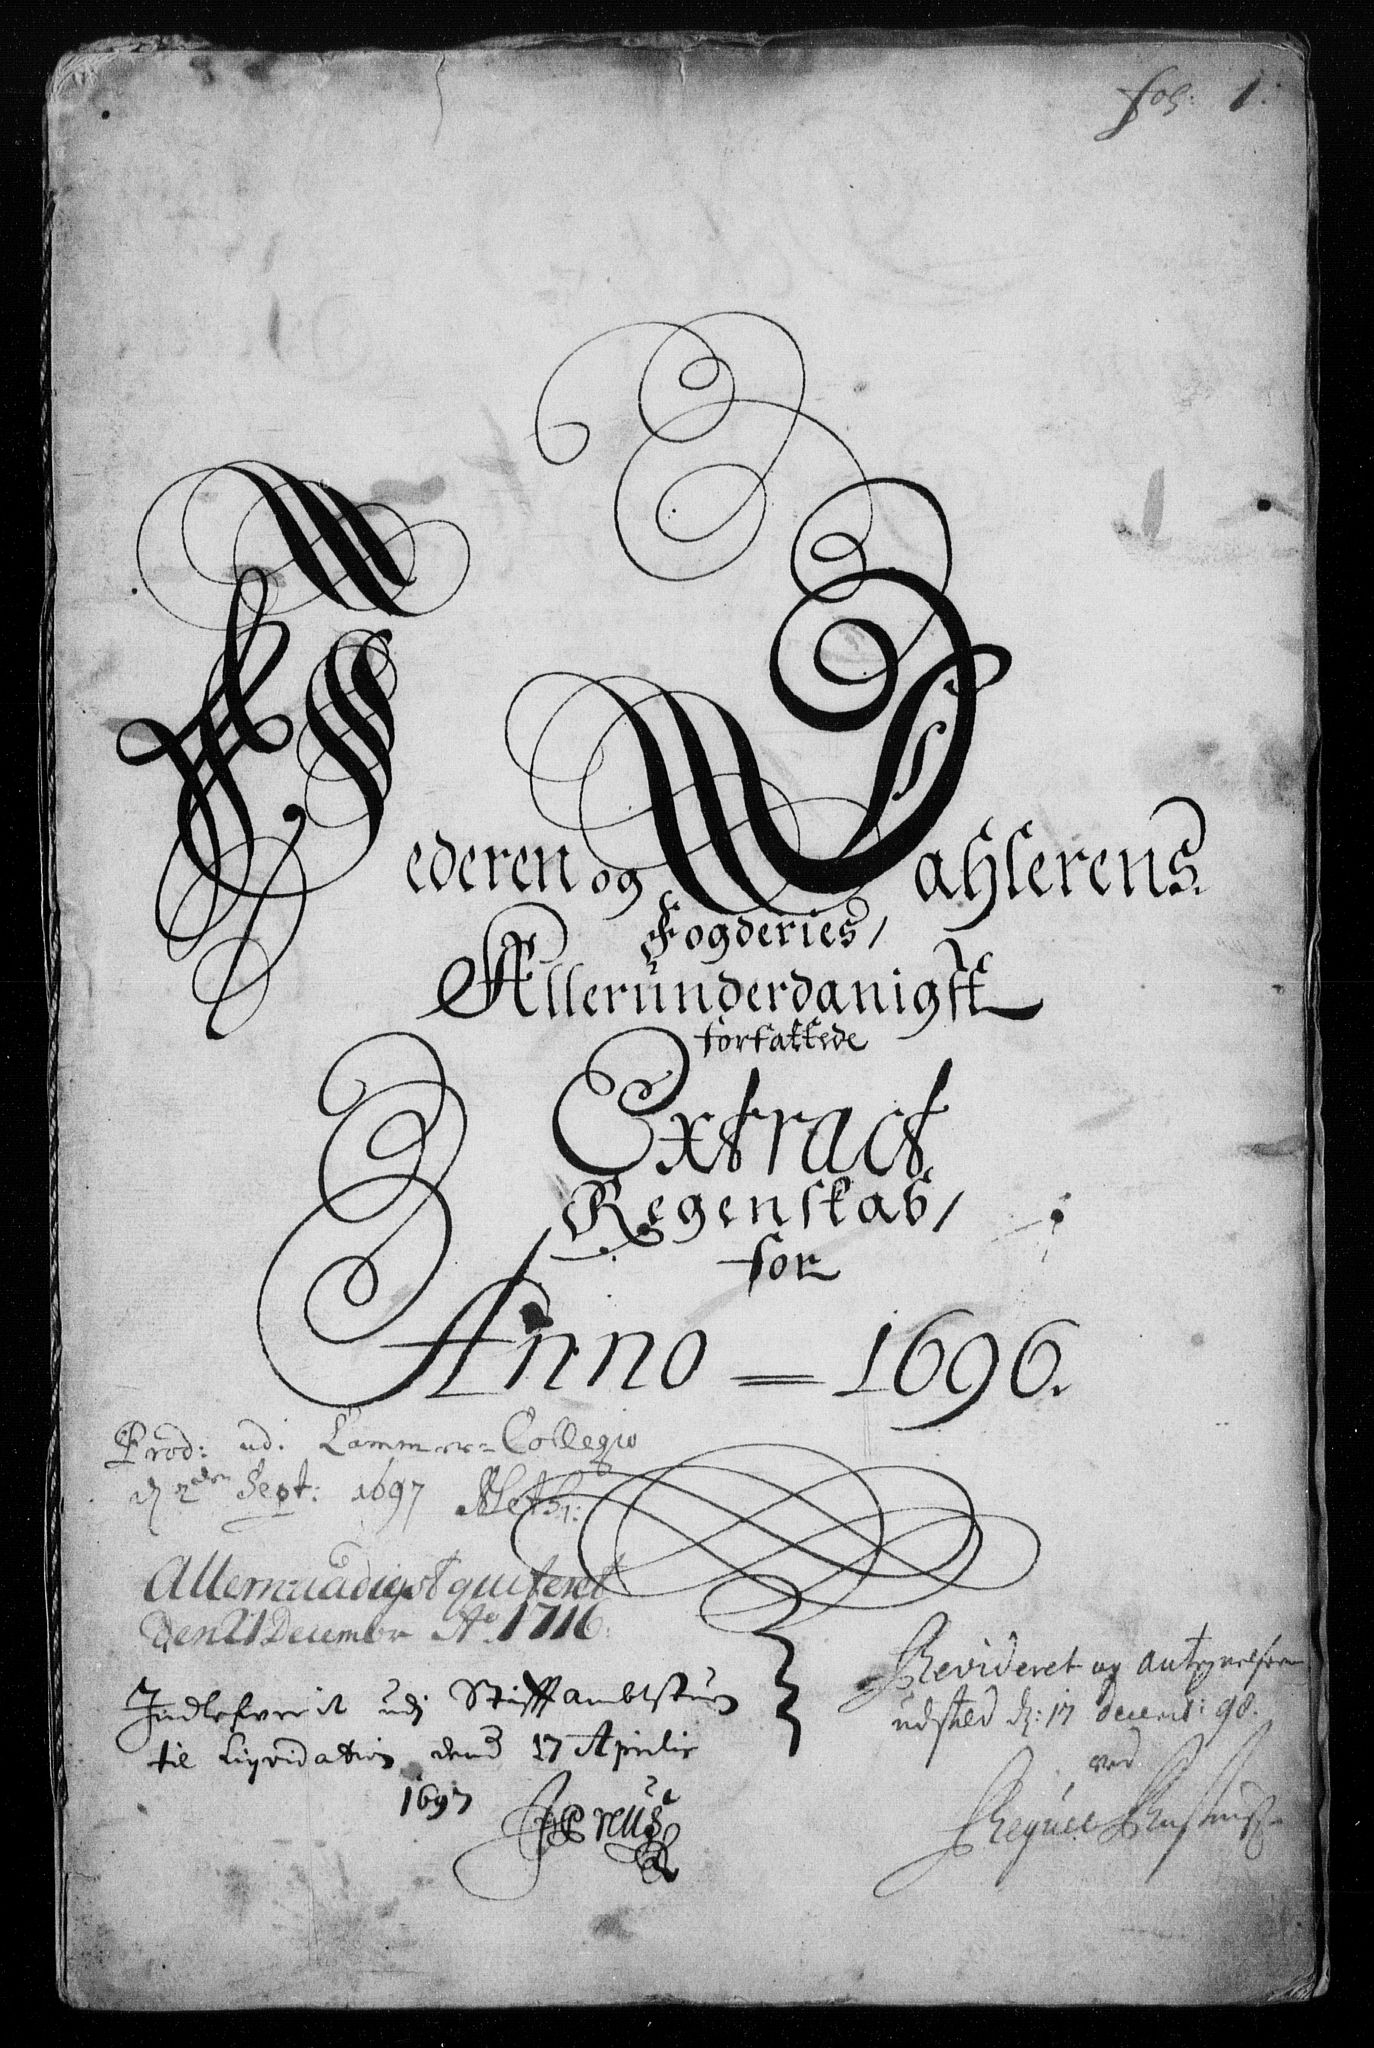 fol: 1.
Jederen og Dahlerens
Fogderies/
Allerunderdanigste
forfattede
Extract
Regenskab/
for
Anno = 1696.
Prod: ud. Cammer-Collegio
d 2den Sept: 1697
Allernaadigst quiteret
Den 21 December Ao. 1716.
Indlefverit udj Stiftambtstuen
til Liqvidation dend 17 Aprilis
1697
Revideret og antegnelsen
udsted d: 17 decemb: 98.
ved